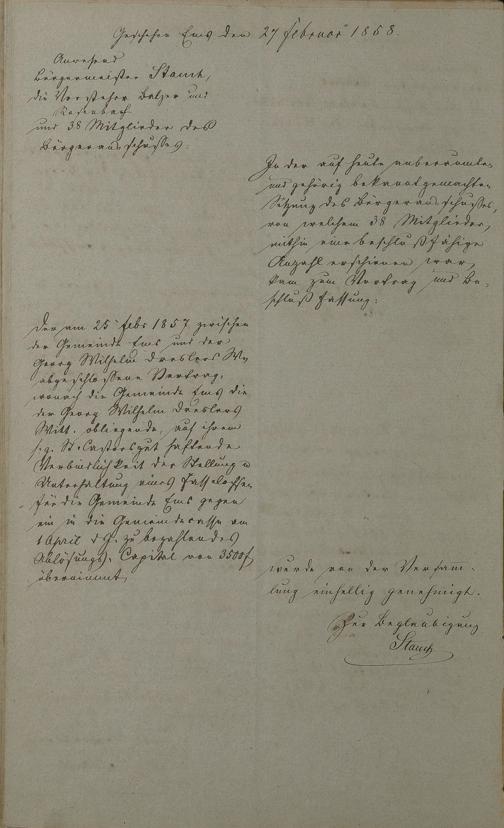 Geschehen Ems den 27 Februar 1858.
Anwesend
Bürgermeister Stauch,
die Vorsteher Balzer und
Rosenbach
und 38 Mitglieder des
Bürgerausschusses.
In der auf heute anberaumte
und gehörig bekannt gemachte
Sitzung des Bürgerausschusses,
von welchem 38 Mitglieder,
mithin eine beschlußfähige
Anzahl erschienen war,
kam zum Vortrag und Be-
schlußfassung:
Der am 25 Febr 1857 zwischen
der Gemeinde Ems und der
Georg Wilhelm Dreslers Ww
abgeschlossene Vertrag,
wonach die Gemeinde Ems die
der Georg Wilhelm Dreslers
Witt. obliegende, auf ihrem
s.g. St. Castorsgut haftende
Verbindlichkeit der Stellung u
Unterhaltung eines Fasselochsen
für die Gemeinde Ems gegen
ein in die Gemeindecasse am
1 April d J. zu bezahlendes
Ablösungs-Capital von 3500 f
übernimmt,
wurde von der Versam-
lung einhellig genehmigt.
Zur Beglaubigung
Stauch